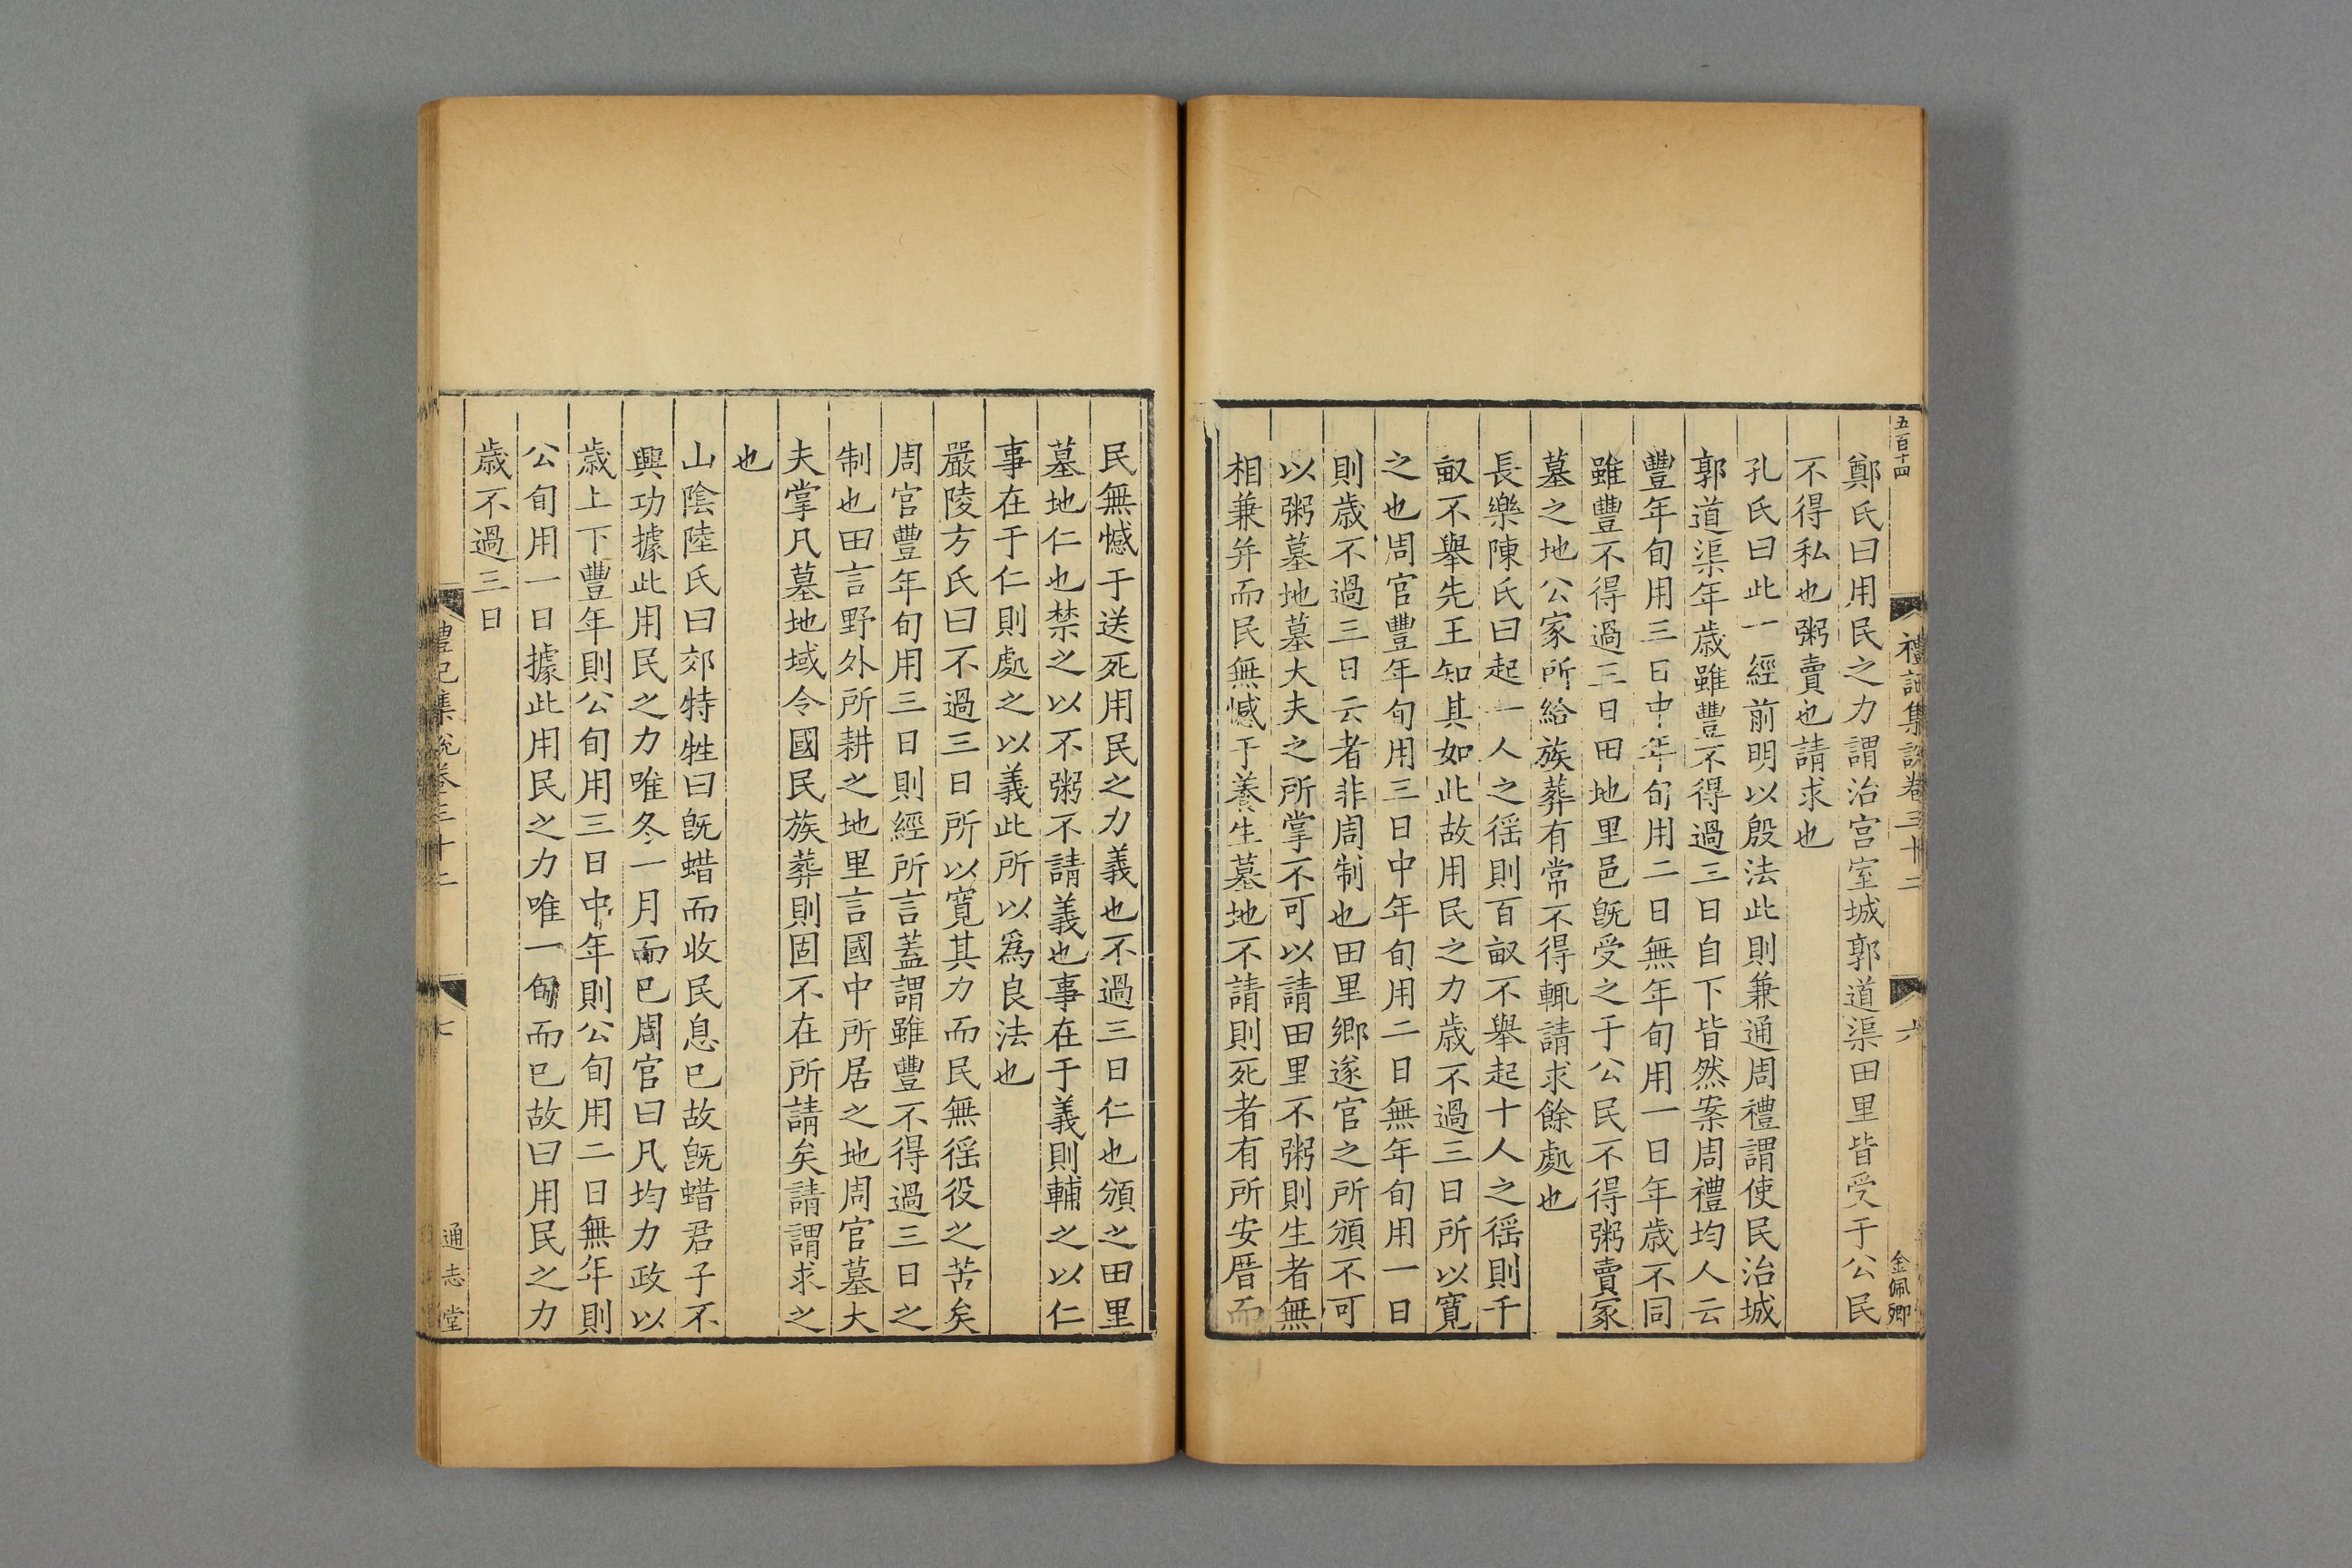 五百十四
禮記集說卷三十二
六
金佩卿
鄭氏曰用民之力謂治宫室城郭道渠田里皆受于公民
不得私也粥賣也請求也
孔氏曰此一經前明以殷法此則兼通周禮謂使民治城
郭道渠年歲雖豐不得過三日自下皆然案周禮均人云
豐年旬用三日中年旬用二日無年旬用一日年歲不同
雖豐不得過三日田地里邑旣受之于公民不得粥賣冢
墓之地公家所給族葬有常不得輒請求餘處也
長樂陳氏曰起一人之徭則百畝不舉起十人之徭則千
畝不舉先王知其如此故用民之力歲不過三日所以寬
之也周官豐年旬用三日中年旬用二日無年旬用一日
則歲不過三日云者非周制也田里鄉遂官之所頒不可
以粥墓地墓大夫之所掌不可以請田里不粥則生者無
相兼并而民無憾于養生墓地不請則死者有所安厝而
民無憾于送死用民之力義也不過三日仁也頒之田里
墓地仁也禁之以不粥不請義也事在于義則輔之以仁
事在于仁則處之以義此所以爲良法也
嚴陵方氏曰不過三日所以寬其力而民無徭役之苦矣
周官豐年旬用三日則經所言蓋謂雖豐不得過三日之
制也田言野外所耕之地里言國中所居之地周官墓大
夫掌凡墓地域令國民族葬則固不在所請矣請謂求之
也
山陰陸氏曰郊特牲曰旣蜡而收民息已故旣蜡君子不
興功據此用民之力唯冬一月而已周官曰凡均力政以
歲上下豐年則公旬用三日中年則公旬用二日無年則
公旬用一日據此用民之力唯一旬而已故曰用民之力
歲不過三日
禮記集說卷三十二
七
通志堂